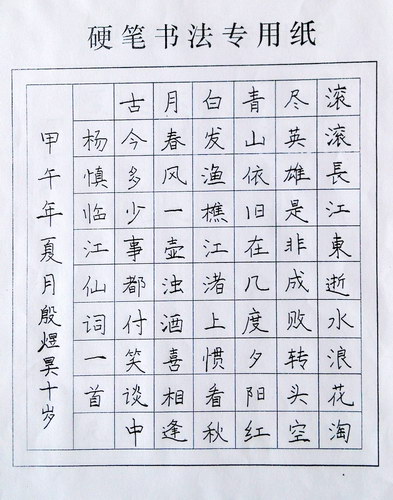 硬笔书法专用纸
滚滚長江東逝水浪花淘
尽英雄是非成败转头空
青山依旧在几度夕阳红
白发渔樵江渚上惯看秋
月春风一壶浊酒喜相逢
古今多少事都付笑谈中
杨慎临江仙词一首
甲午年夏月殷煜昊十岁